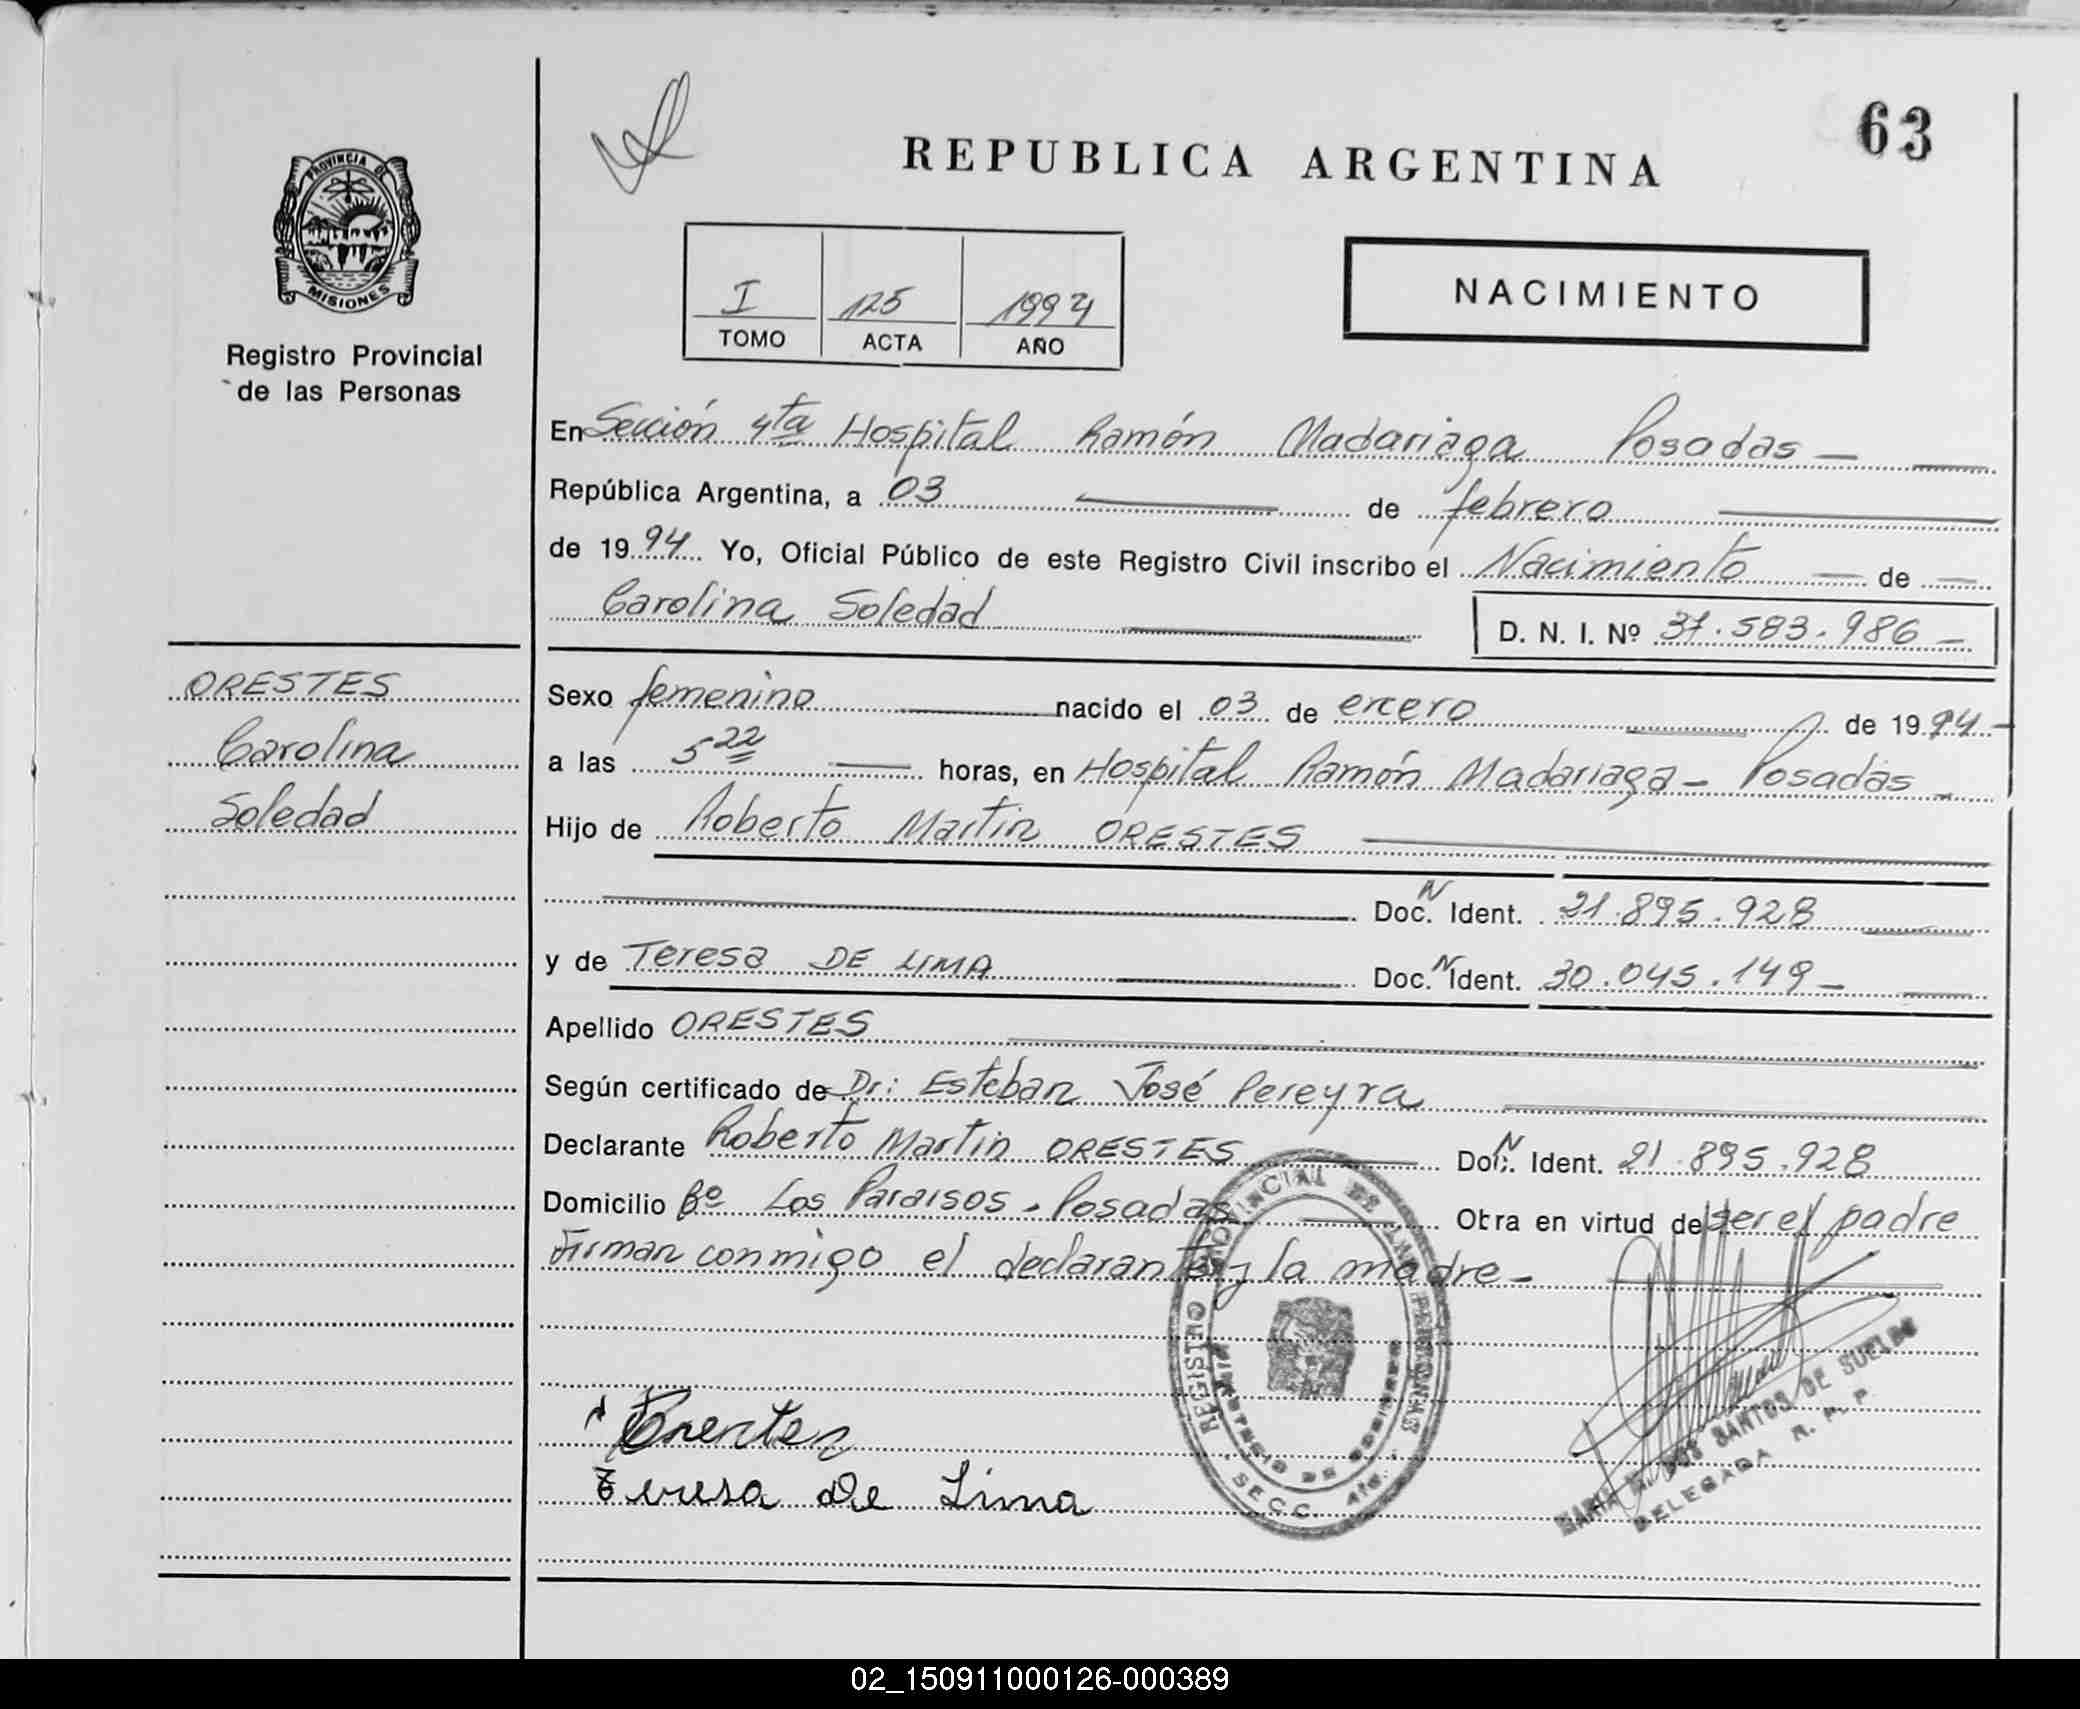 63
REPUBLICA ARGENTINA
PROVINCIA DE
MISIONES
Registro Provincial
de las Personas
NACIMIENTO
I 125 1994
TOMO ACTA AÑO
En Sección 4ta Hospital Ramón Madariaga Posadas —
República Argentina, a 03 de febrero
de 1994 Yo, Oficial Público de este Registro Civil inscribo el Nacimiento — de —
Carolina Soledad D. N. I. Nº 31.583.986 —
ORESTES
Carolina
Soledad
Sexo femenino nacido el 03 de enero de 1994 —
a las 5 22 horas, en Hospital Ramón Madariaga - Posadas -
Hijo de Roberto Martin ORESTES
Doc. N Ident. 21.895.928
y de Teresa DE LIMA Doc. N Ident. 30.045.149 —
Apellido ORESTES
Según certificado de Dr: Esteban José Pereyra
Declarante Roberto Martin ORESTES Doc. N Ident. 21.895.928
Domicilio Bº Los Paraisos - Posadas Obra en virtud de ser el padre
Firman conmigo el declarante y la madre -
REGISTRO PROVINCIAL DE LAS PERSONAS
MINISTERIO DE GOBIERNO
SECC. 4ta.
Teresa de Lima
MARIA M. DOS SANTOS DE SUELDO
DELEGADA R. P. P.
02_150911000126-000389